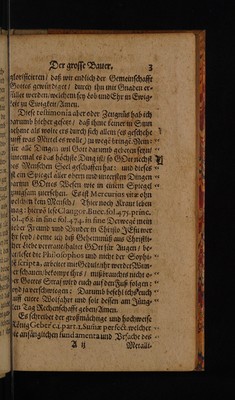 Der grosse Bauer. 3
glorificirten / daß wir endlich der Gemeinschafft
Gottes gewürdiget / durch ihn mit Gnaden er-
füllet werden / welchem sey Lob und Ehr in Ewig-
keit zu Ewigkeit / Amen.
Diese testimonia oder Zeugnüs hab ich
darumb hieher gesetzt / daß ihme keiner in Sinn
nehme als wolte ers durch sich allein (es geschehe
auff was Mittel es wolle) zu wege bringen. Nein:
für alle Dingen wil Gott darumb gebeten seyn /
sintemal es das höchste Ding ist / so GOtt nechst
des Menschen Seel geschaffen hat: und dieses
ist ein Spiegel aller obern und untersten Dingen
darinn GOttes Wesen wie in einem Spiegel
gleichsam zu ersehen. Es ist Mercurius wie ohn
welchen kein Mensch / Thier noch Kraut leben
mag: hiervon lese Clangor. Buccı. fol. 475. princ.
fol. 482. in fine fol. 474. in fine Derwegẽ mein
lieber Freund und Bruder in Christo JEsu wer
ihr seyd / deme ich diß Geheimnüß aus Christli-
cher Liebe vertraut haltet GOtt für Augen / be-
tet leset die Philosophos und nicht der Sophi-
sten scripta, arbeitet mit Gedult
 Jahr werdet Wun-
der schauen / bekompt ihrs / mißbrauchts nicht o-
der Gottes Straf wird euch auf dem Fuß folgen:
seyd ja verschwiegen: Darumb befehl ichs euch
auff eitere Wolfahrt und solt dessen am Jüng-
sten Tag Rechenschafft geben / Amen.
Es schreibet der großmächtige und hochweise
König Geber c. 4. part. 1. Summ. perfect. welcher
die anfänglichen fundamenta und Ursache des
A ij Metall-